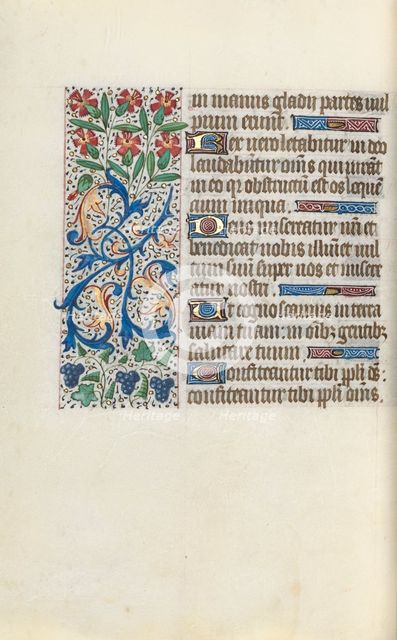 in manus gladij partes vul
pium erunt.
Rex vero letabitur in deo
laudabuntur omnes qui jurant
in eo qr obstructum est os loquen
cium iniqua.
Deus misereatur nri et
benedicat nobis illumet vul
tum suum super nos et misere
atur nostri.
Ut cognoscamus in terra
viam tuam: in omibz gentibz
salutare tuum.
Confiteantur tibi ppli ds:
confiteantur tibi ppli omnes.
heritage
Heritage